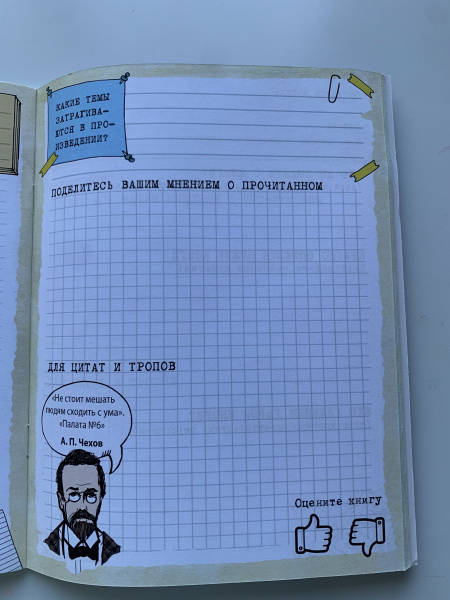 КАКИЕ ТЕМЫ
ЗАТРАГИВА-
ЮТСЯ В ПРО-
ИЗВЕДЕНИИ?
ПОДЕЛИТЕСЬ ВАШИМ МНЕНИЕМ О ПРОЧИТАННОМ
ДЛЯ ЦИТАТ И ТРОПОВ
«Не стоит мешать
людям сходить с ума».
«Палата №6»
А. П. Чехов
Оцените книгу